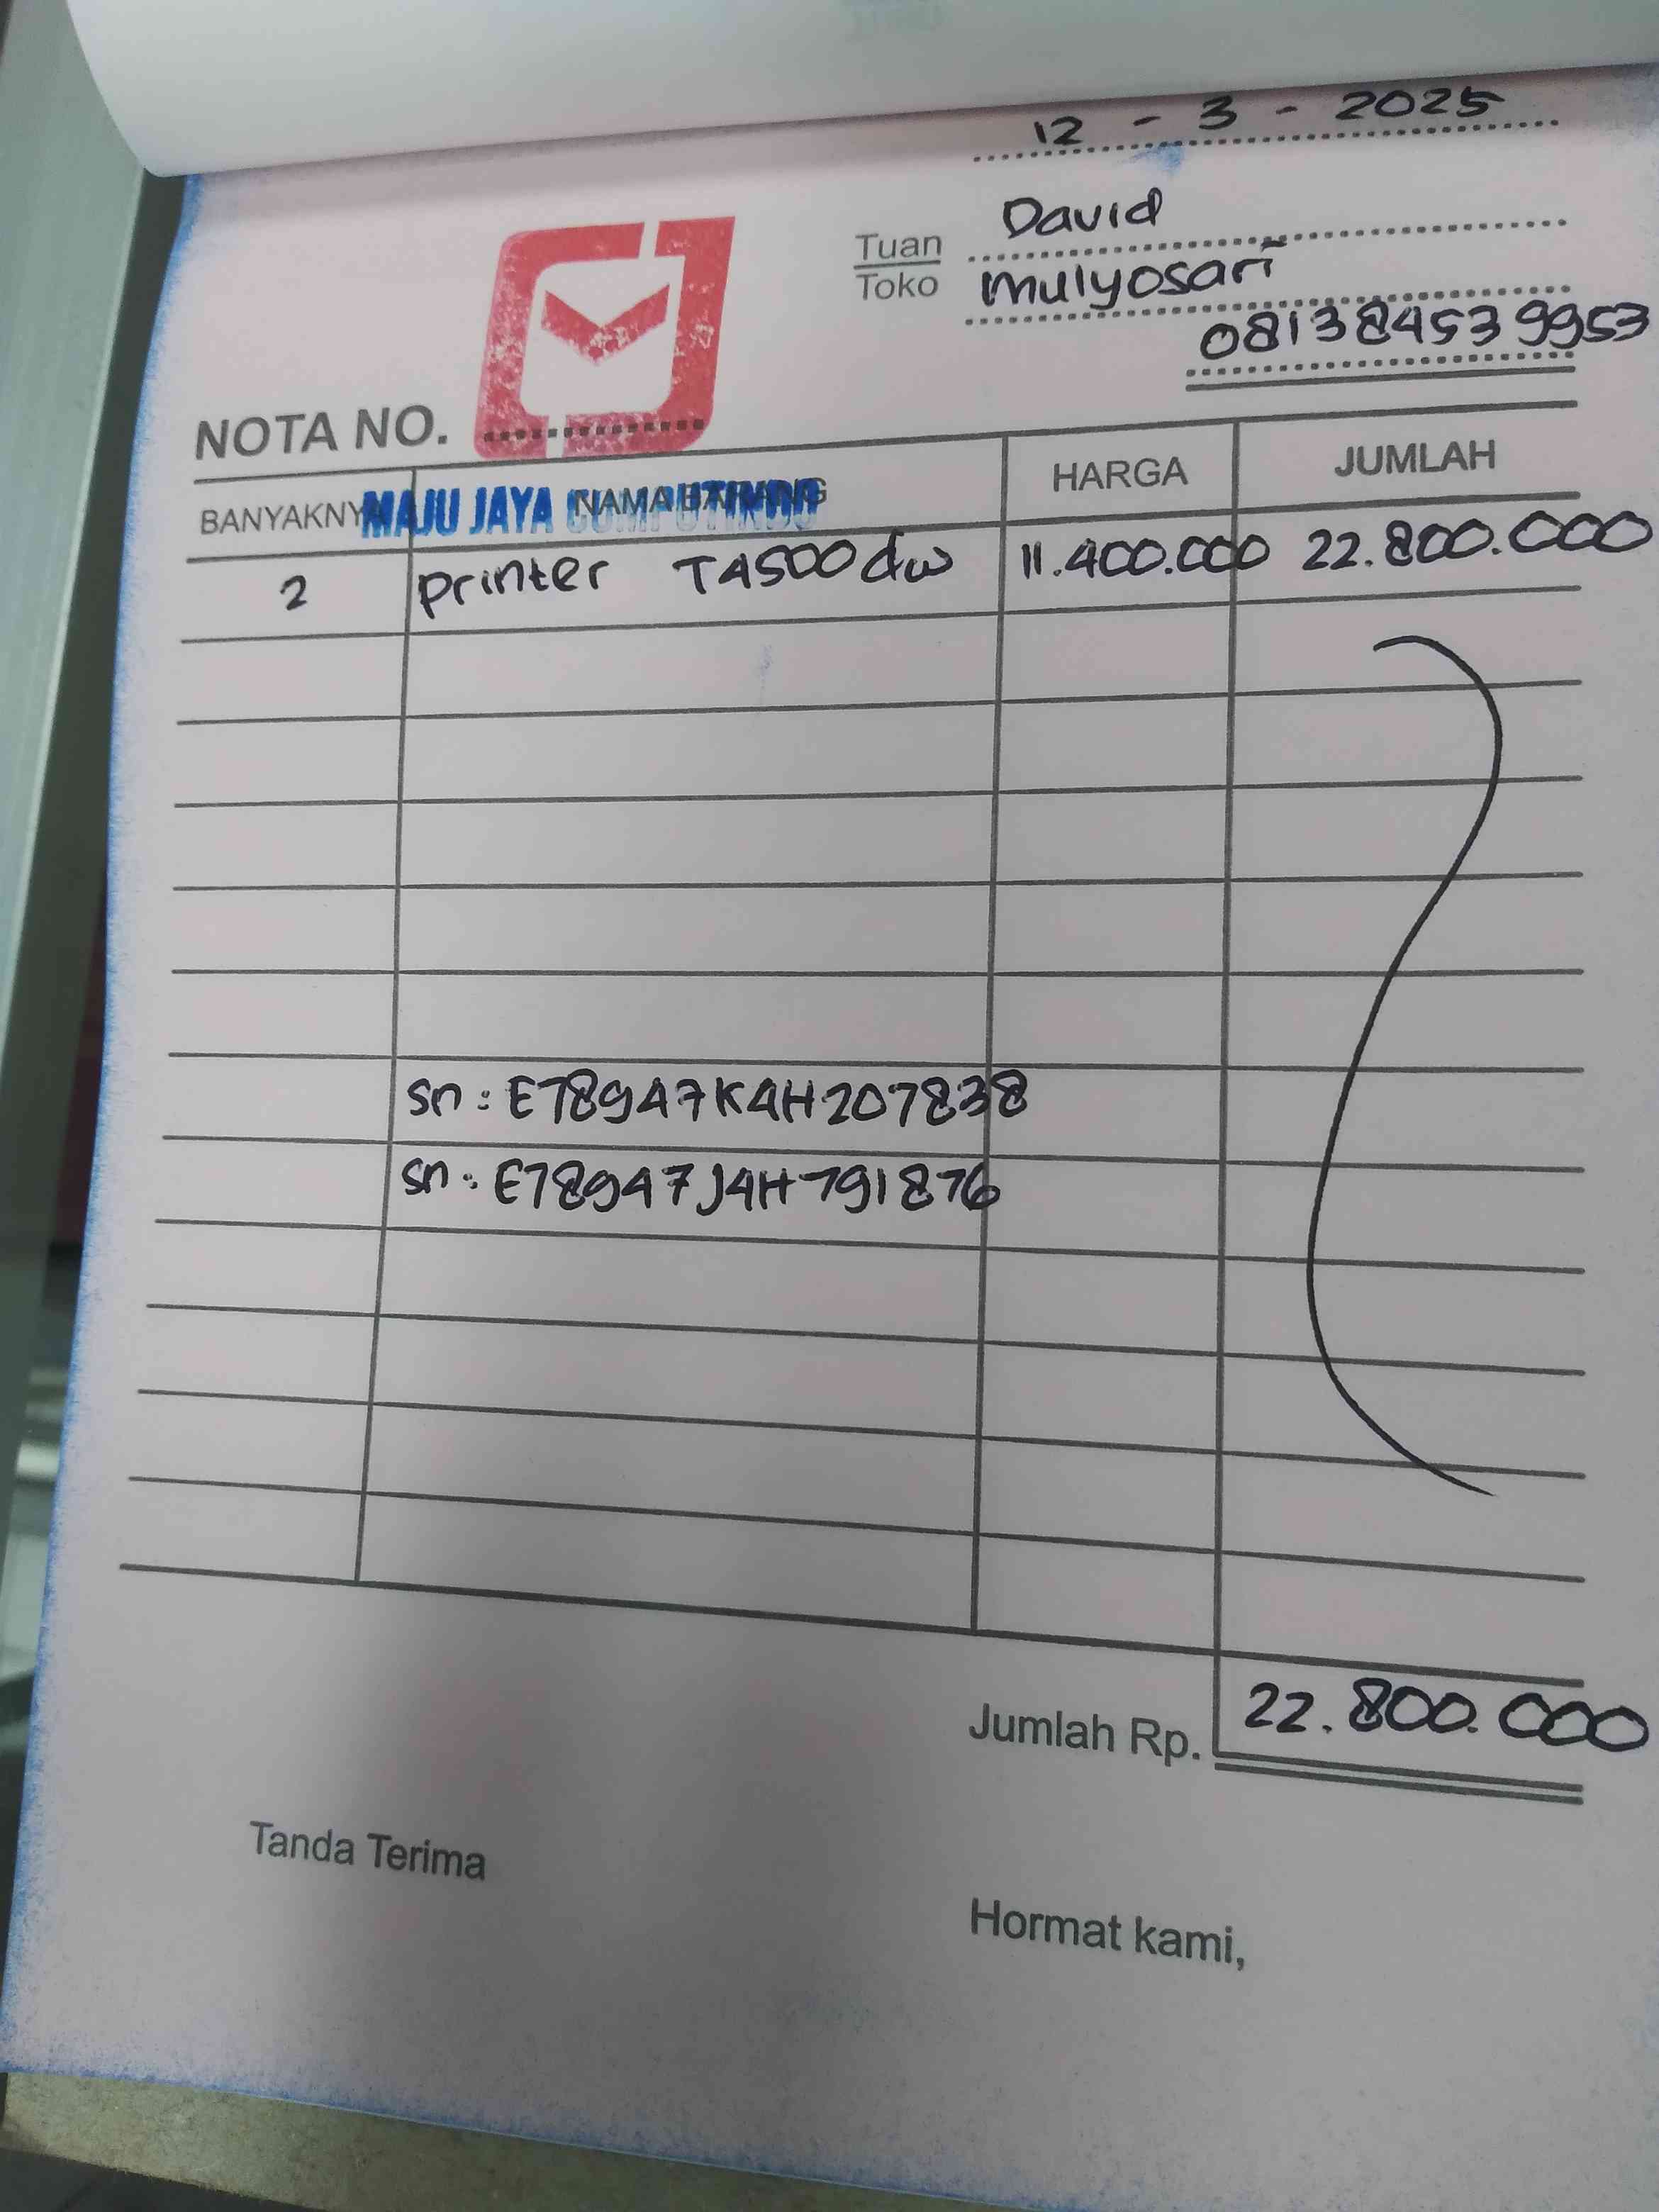 12 - 3 - 2025
Tuan David
Toko Mulyosari
081384539953
NOTA NO.
BANYAKNYA NAMA BARANG HARGA JUMLAH
MAJU JAYA COMPUTINDO
2 Printer T4500dw 11.400.000 22.800.000
sn : E78947K4H207838
sn : E78947J4H791876
Jumlah Rp. 22.800.000
Tanda Terima
Hormat kami,